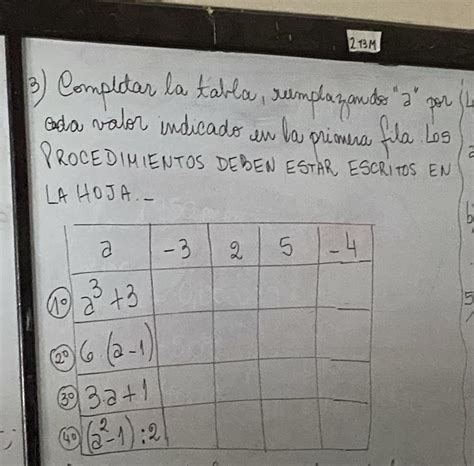 2º3M
3) Completar la tabla, remplazando "a" por
cada valor indicado en la primera fila. Los
PROCEDIMIENTOS DEBEN ESTAR ESCRITOS EN
LA HOJA.-
a -3 2 5 -4
1º a³+3
2º 6.(a-1)
3º 3.a+1
4º (a²-1):2